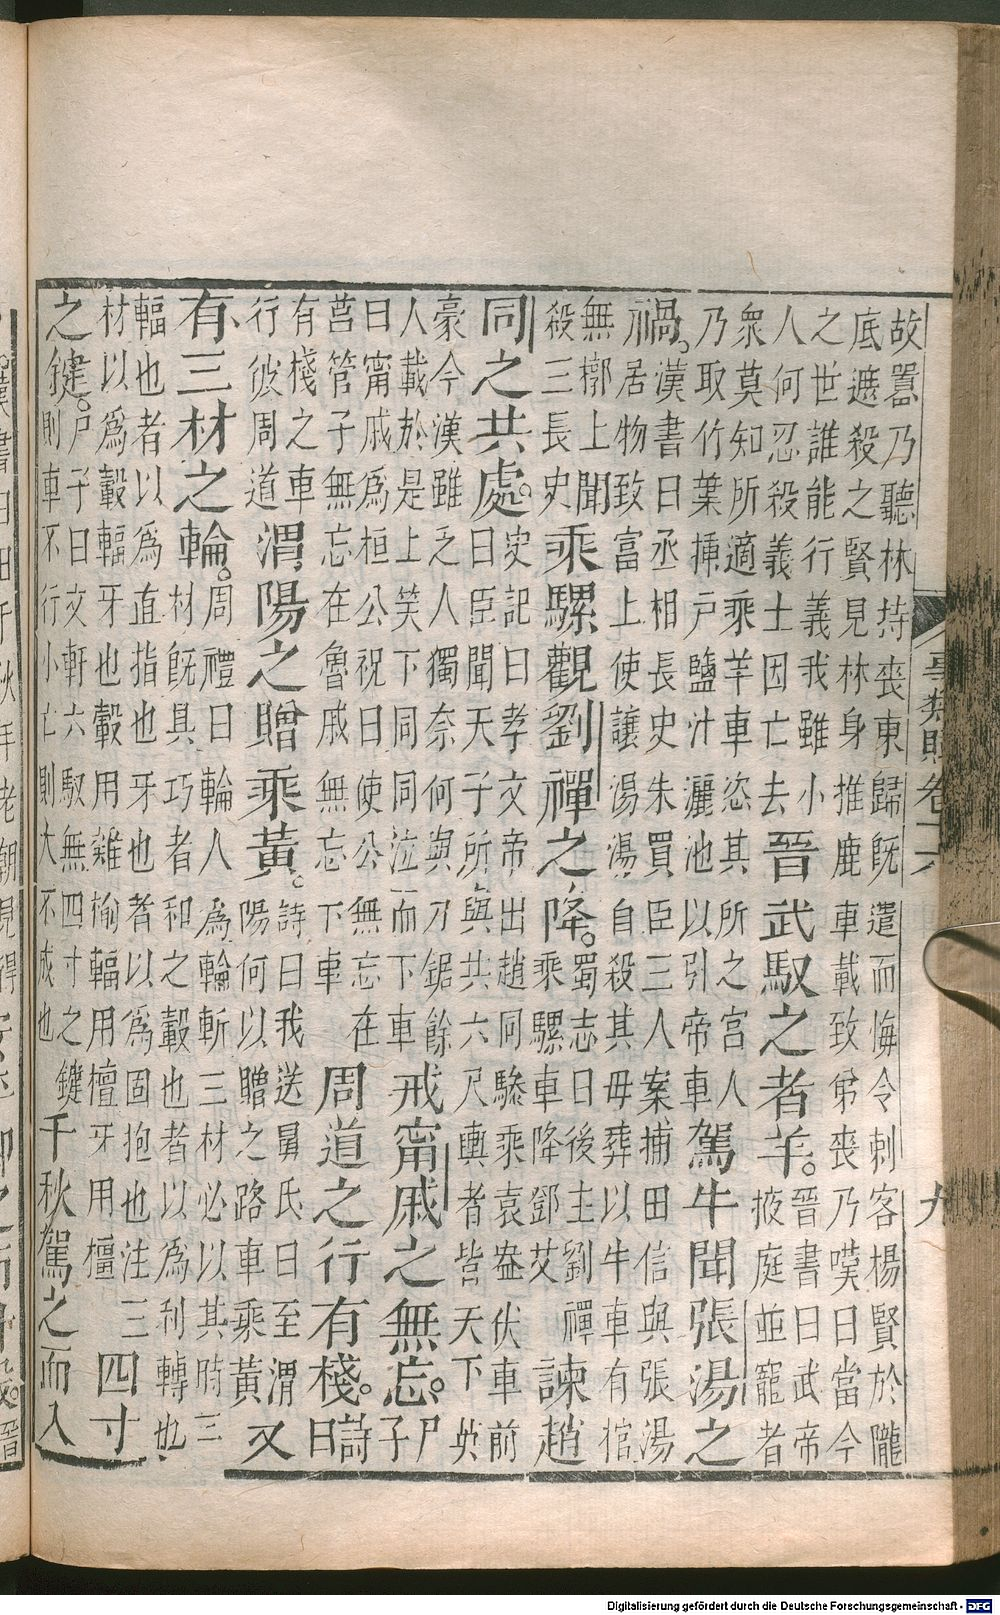 故嚣乃聽林持喪東歸既遣而悔令刺客楊賢於隴
底遮殺之賢見林身推鹿車載致弟喪乃嘆曰當今
之世誰能行義我雖小
人何忍殺義士因亡去
晉武馭之者羊。
晉書曰武帝
掖庭並寵者
衆莫知所適乘羊車恣其所之宮人
乃取竹葉挿戶鹽汁灑池以引帝車
駕牛聞張湯之
禍。
漢書曰丞相長史朱買臣三人案捕田信與張湯
居物致富上使讓湯湯自殺其毋葬以牛車有棺
無槨上聞
殺三長史
乘騾觀劉禪之降。
蜀志曰後主劉禪
乘騾車降鄧艾
諫趙
同之共處。
史記曰孝文帝出趙同驂乘袁盎伏車前
曰臣聞天子所與共六尺輿者皆天下英
豪今漢雖乏人獨奈何與刀鋸餘
人載於是上笑下同同泣而下車
戒甯戚之無忘。
尸
子
曰甯戚爲桓公祝曰使公無忘在
莒管子無忘在魯戚無忘下車
周道之行有棧。
詩
曰
有棧之車
行彼周道
渭陽之贈乘黃。
詩曰我送舅氏曰至渭
陽何以贈之路車乘黃
又
有三材之輪。
周禮曰輪人爲輪斬三材必以其時三
材旣具巧者和之轂也者以爲利轉也
輻也者以爲直指也牙也者以爲固抱也注三
材以爲轂輻牙也轂用雜榆輻用檀牙用橿
四寸
之鍵。
尸子曰文軒六馭無四寸之鍵
則車不行小亡則大不成也
千秋駕之而入
事類賦卷十六
九
Digitalisierung gefördert durch die Deutsche Forschungsgemeinschaft - DFG